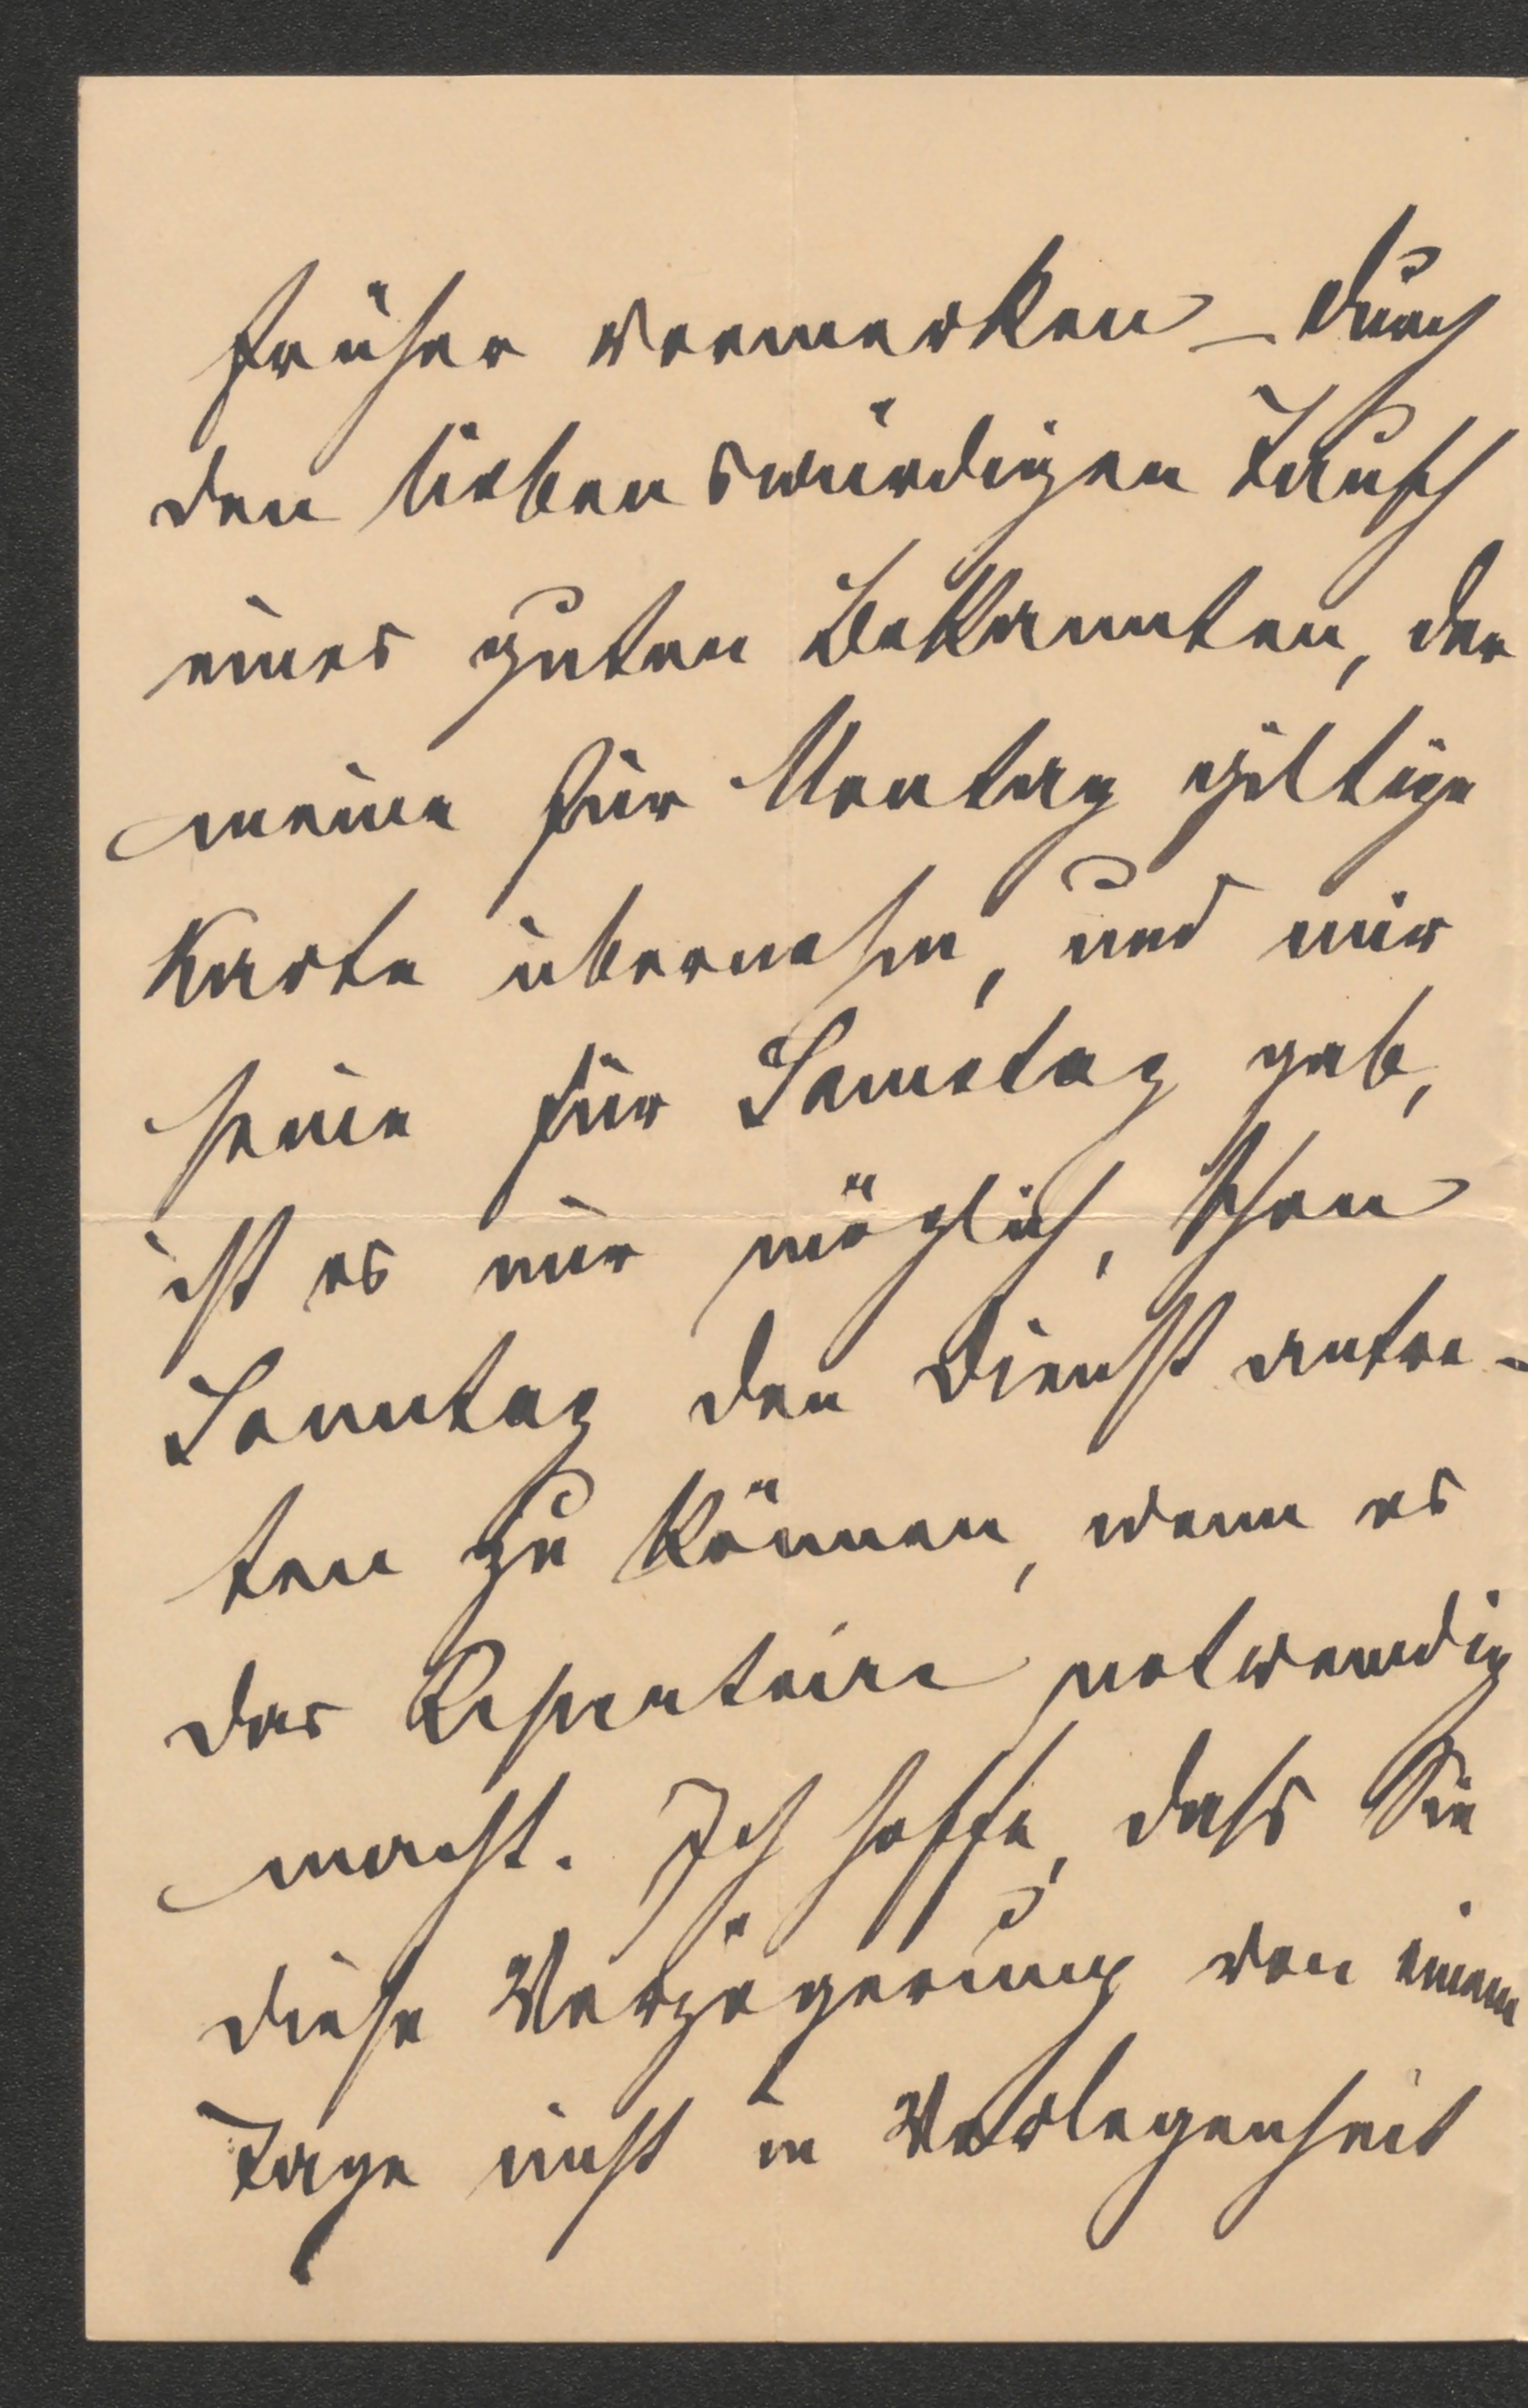 früher vormerken – durch
den liebenswürdigen Tausch
eines guten Bekannten, der
meine für Montag giltige
Karte übernahm, und mir
seine für Samstag gab,
ist es mir möglich, schon
Sonntag den Dienst antre-
ten zu können, wenn es
das Repertoire notwendig
macht. Ich hoffe, dass Sie
diese Verzögerung von einem
Tage nicht in Verlegenheit